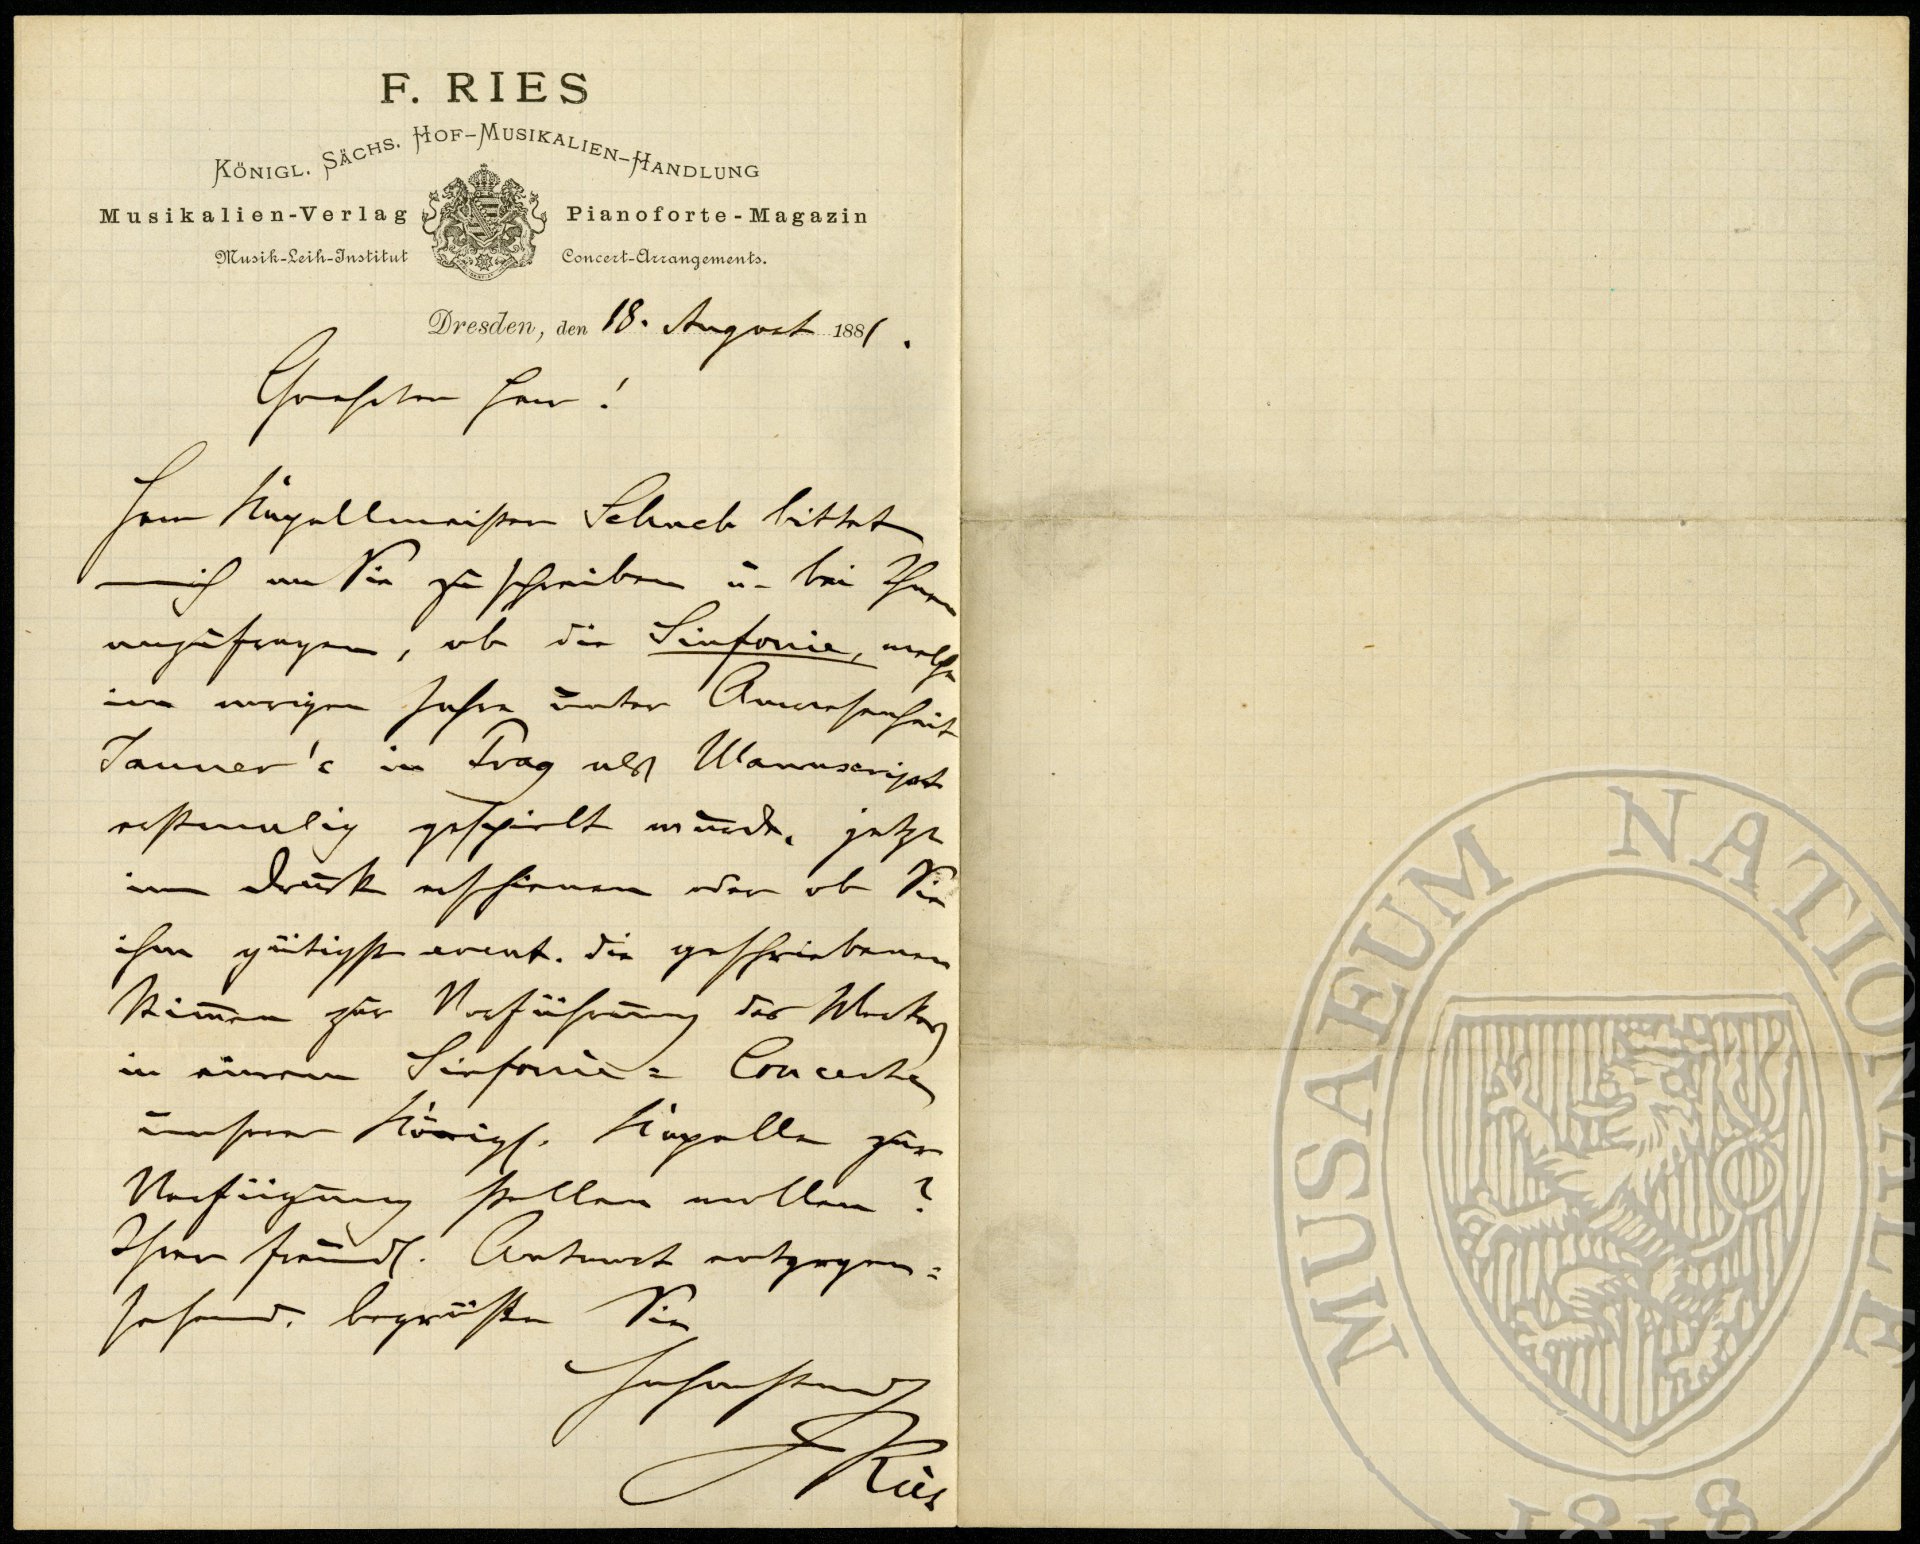 F. RIES
KÖNIGL. SÄCHS. HOF-MUSIKALIEN-HANDLUNG
Musikalien-Verlag Pianoforte-Magazin
Musik-Leih-Institut Concert-Arrangements.
Dresden, den 18. August 1881.
Geehrter Herr!
Herr Kapellmeister Schuch bittet
mich an Sie zu schreiben u. bei Ihnen
anzufragen, ob die Sinfonie, welche
im vorigen Jahre unter Anwesenheit
Jauner's in Prag als Manuscript
erstmalig gespielt wurde, jetzt
im Druck erschienen oder ob Sie
ihm gütigst event. die geschriebenen
Stimmen zur Vorführung des Werkes
in einem Sinfonie= Concerte
unserer Königl. Kapelle zur
Verfügung stellen wollen?
Ihrer freundl. Antwort entgegen=
sehend, begrüßt Sie
Hochachtend
F Ries
MUSAEUM NATIONALE
1818